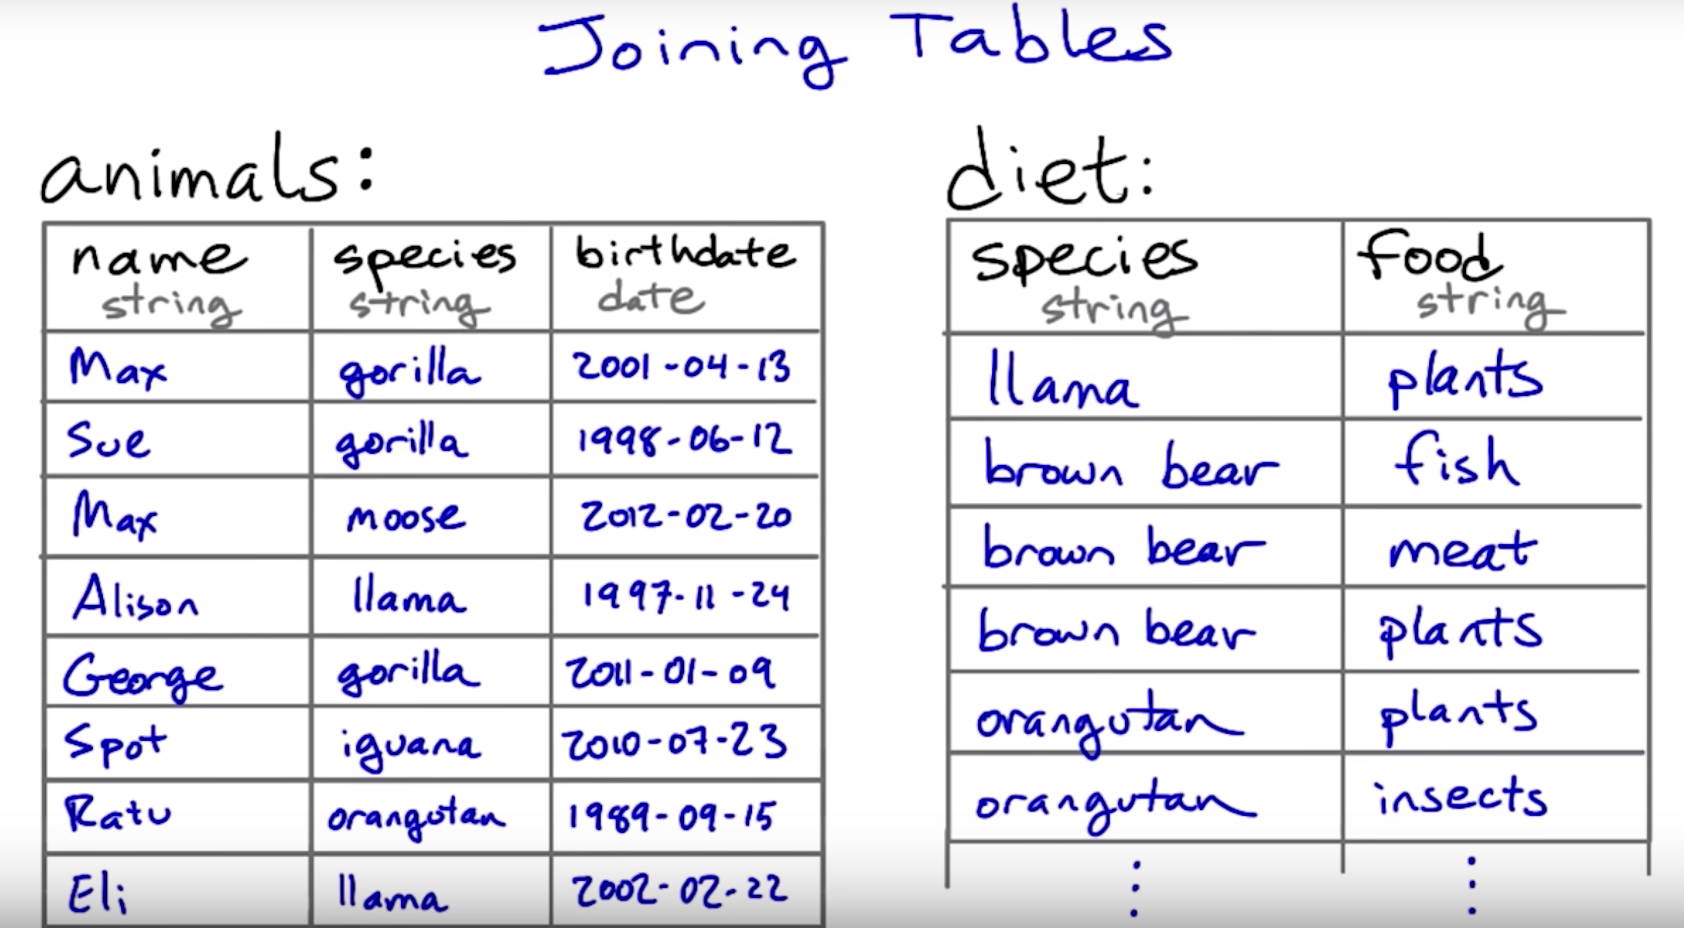 Joining Tables
animals:
name species birthdate
string string date
Max gorilla 2001-04-13
Sue gorilla 1998-06-12
Max moose 2012-02-20
Alison llama 1997-11-24
George gorilla 2011-01-09
Spot iguana 2010-07-23
Ratu orangutan 1989-09-15
Eli llama 2002-02-22
diet:
species food
string string
llama plants
brown bear fish
brown bear meat
brown bear plants
orangutan plants
orangutan insects